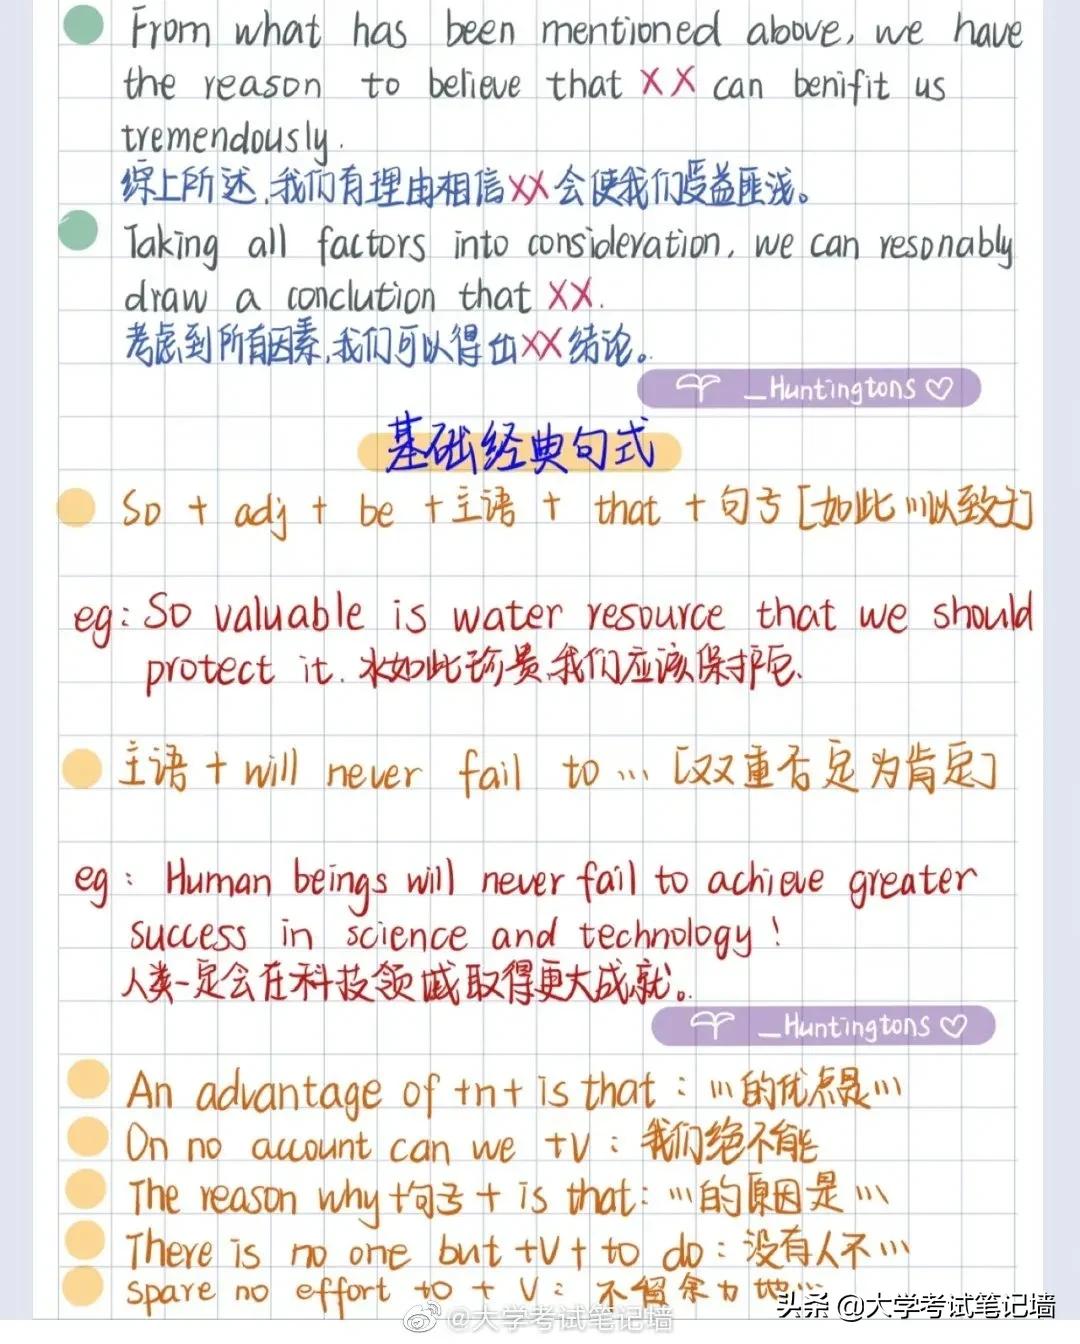 From what has been mentioned above, we have
the reason to believe that XX can benifit us
tremendously.
综上所述,我们有理由相信XX会使我们受益匪浅。
Taking all factors into consideration, we can resonably
draw a conclution that XX.
考虑到所有因素,我们可以得出XX结论。
_Huntingtons♡
基础经典句式
So + adj + be +主语 + that +句子[如此…以致于]
eg: So valuable is water resource that we should
protect it. 水如此珍贵,我们应该保护它.
主语 + will never fail to … [双重否定为肯定]
eg: Human beings will never fail to achieve greater
success in science and technology!
人类一定会在科技领域取得更大成就。
_Huntingtons♡
An advantage of +n+ is that: …的优点是…
On no account can we +V: 我们绝不能
The reason why+句子+ is that: …的原因是…
There is no one but +V+ to do: 没有人不…
spare no effort to + V: 不留余力地…
@大学考试笔记墙
头条 @大学考试笔记墙